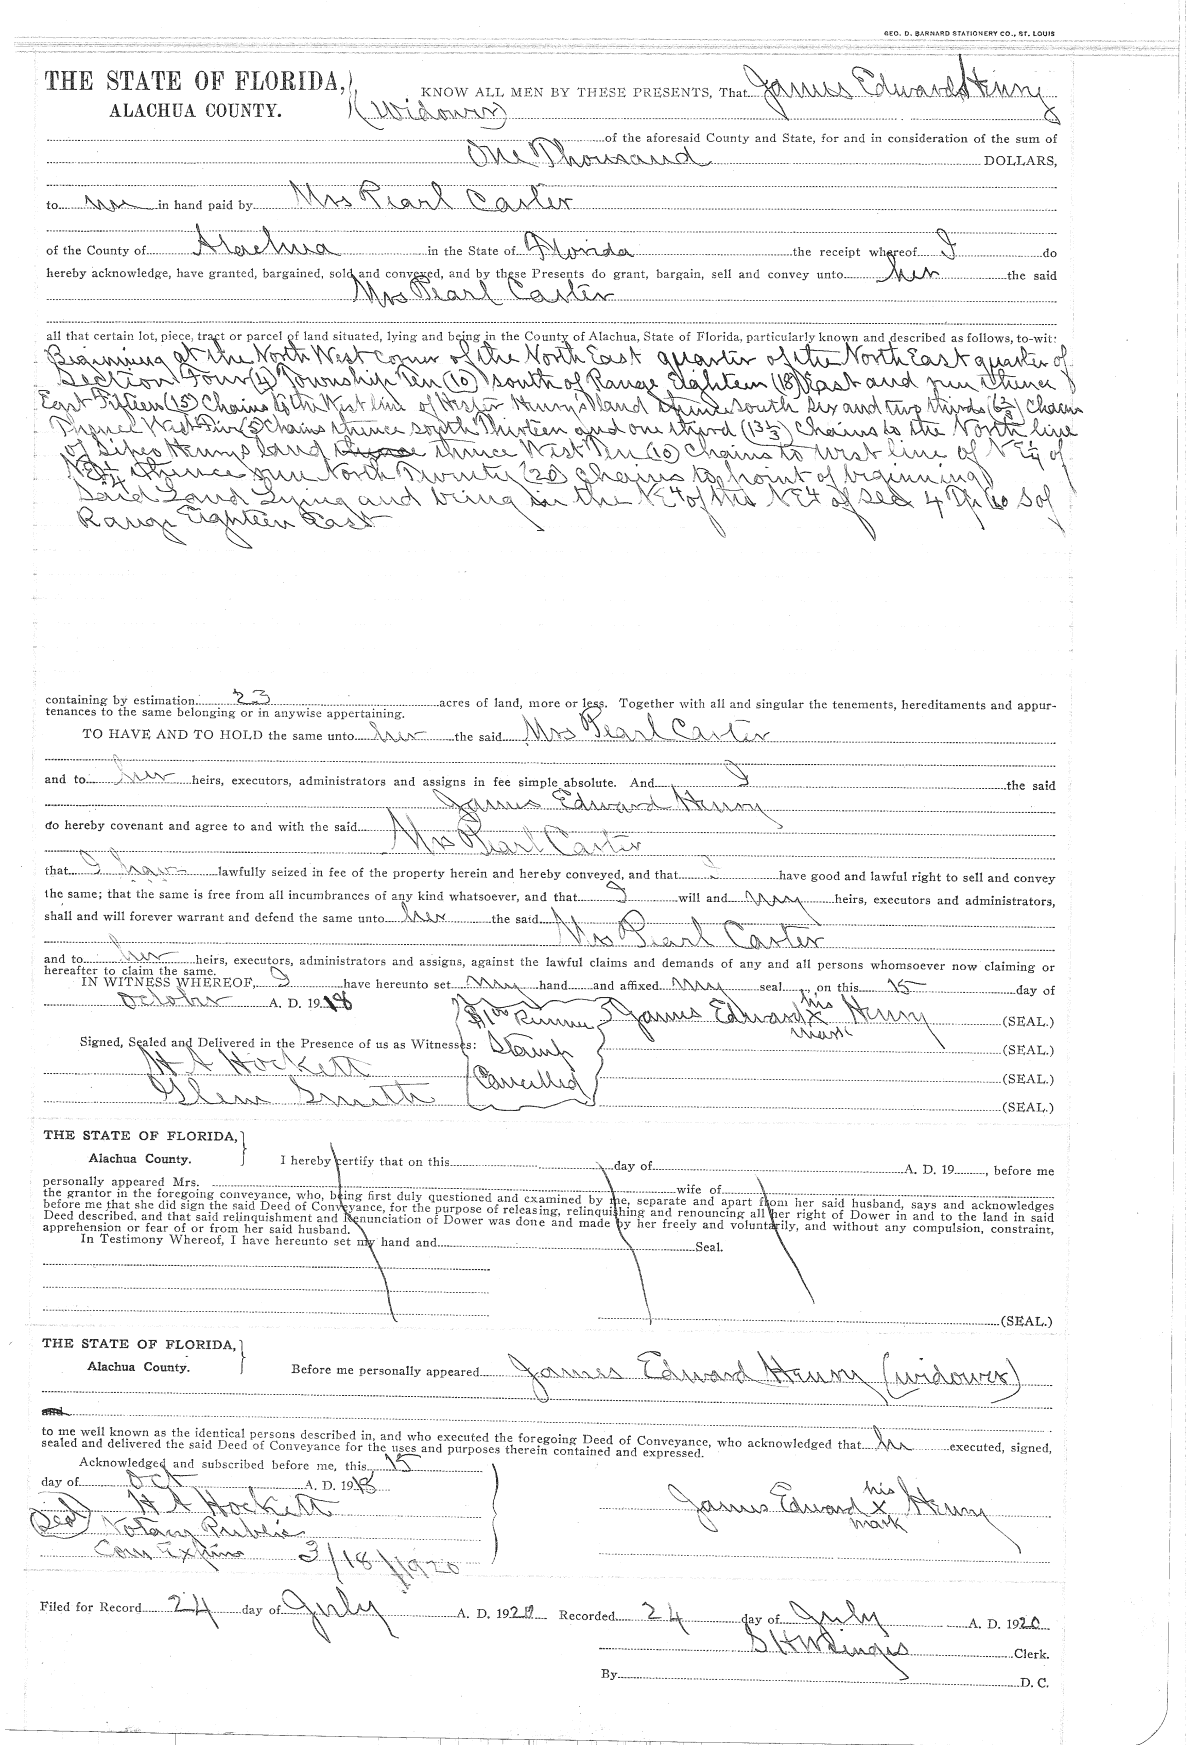 GEO. D. BARNARD STATIONERY CO., ST. LOUIS
THE STATE OF FLORIDA, KNOW ALL MEN BY THESE PRESENTS, That James Edward Henry
ALACHUA COUNTY. (Widower)
of the aforesaid County and State, for and in consideration of the sum of
One Thousand DOLLARS,
to me in hand paid by Mrs Pearl Carter
of the County of Alachua in the State of Florida the receipt whereof I do
hereby acknowledge, have granted, bargained, sold and conveyed, and by these Presents do grant, bargain, sell and convey unto her the said
Mrs Pearl Carter
all that certain lot, piece, tract or parcel of land situated, lying and being in the County of Alachua, State of Florida, particularly known and described as follows, to-wit:
Beginning at the North West corner of the North East quarter of the North East quarter of
Section Four (4) Township Ten (10) south of Range Eighteen (18) East and run thence
East Fifteen (15) Chains to the West line of Henry's land thence south six and two thirds (6⅔) chains
Thence West Five (5) Chains thence south Thirteen and one third (13⅓) Chains to the North line
of Henrys land thence West Ten (10) Chains to west line of NE¼ of
NE¼ thence run North Twenty (20) chains to point of beginning
Said Land Lying and being in the NE¼ of the NE¼ of Sec 4 Tp 10 S of
Range Eighteen East
containing by estimation 23 acres of land, more or less. Together with all and singular the tenements, hereditaments and appur-
tenances to the same belonging or in anywise appertaining.
TO HAVE AND TO HOLD the same unto her the said Mrs Pearl Carter
and to her heirs, executors, administrators and assigns in fee simple absolute. And I the said
James Edward Henry
do hereby covenant and agree to and with the said Mrs Pearl Carter
that I have lawfully seized in fee of the property herein and hereby conveyed, and that I have good and lawful right to sell and convey
the same; that the same is free from all incumbrances of any kind whatsoever, and that I will and my heirs, executors and administrators,
shall and will forever warrant and defend the same unto her the said Mrs Pearl Carter
and to her heirs, executors, administrators and assigns, against the lawful claims and demands of any and all persons whomsoever now claiming or
hereafter to claim the same.
IN WITNESS WHEREOF, I have hereunto set my hand and affixed my seal, on this 15 day of
October A. D. 1918 $1.00 Revenue James Edward his X mark Henry (SEAL.)
Signed, Sealed and Delivered in the Presence of us as Witnesses: Stamp (SEAL.)
H A Hockett Cancelled (SEAL.)
Glem Smith (SEAL.)
THE STATE OF FLORIDA,
Alachua County. I hereby certify that on this day of A. D. 19 , before me
personally appeared Mrs. wife of
the grantor in the foregoing conveyance, who, being first duly questioned and examined by me, separate and apart from her said husband, says and acknowledges
before me that she did sign the said Deed of Conveyance, for the purpose of releasing, relinquishing and renouncing all her right of Dower in and to the land in said
Deed described, and that said relinquishment and Renunciation of Dower was done and made by her freely and voluntarily, and without any compulsion, constraint,
apprehension or fear of or from her said husband.
In Testimony Whereof, I have hereunto set my hand and Seal.
(SEAL.)
THE STATE OF FLORIDA,
Alachua County. Before me personally appeared James Edward Henry (widower)
and
to me well known as the identical persons described in, and who executed the foregoing Deed of Conveyance, who acknowledged that he executed, signed,
sealed and delivered the said Deed of Conveyance for the uses and purposes therein contained and expressed.
Acknowledged and subscribed before me, this 15
day of Oct A. D. 1918
H A Hockett James Edward his X mark Henry
(Seal) Notary Public
Com Expires 3/18/1920
Filed for Record 24 day of July A. D. 1920 Recorded 24 day of July A. D. 1920
Clerk.
By D. C.